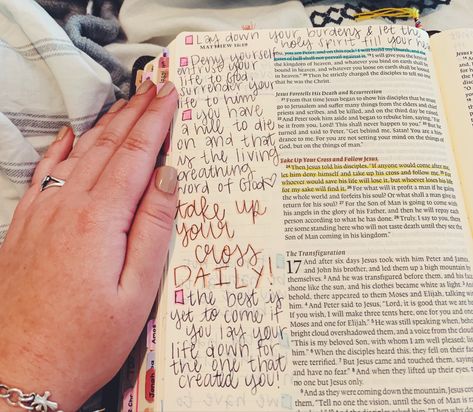 Lay down your burdens & let the
holy spirit fill your
MATTHEW 16:19
Deny yourself
entrust your
life to God
surrender your
life to him
you have
a hill to die
on and that
is the living
breathing
word of God
take up
your
cross
DAILY!
the best is
yet to come if
you lay your
life down for
the one that
created you!
you, you are Peter, and on this rock I will build my church, and the
gates of hell shall not prevail against it. 19 I will give you the keys
bound in heaven, and whatever you loose on earth shall be loosed
in heaven." 20 Then he strictly charged the disciples to tell no one
that he was the Christ.
Jesus Foretells His Death and Resurrection
21 From that time Jesus began to show his disciples that he must
go to Jerusalem and suffer many things from the elders and chief
priests and scribes, and be killed, and on the third day be raised.
22 And Peter took him aside and began to rebuke him, saying, "Far
be it from you, Lord! This shall never happen to you." 23 But he
turned and said to Peter, "Get behind me, Satan! You are a hin-
drance to me. For you are not setting your mind on the things of
God, but on the things of man."
Take Up Your Cross and Follow Jesus
24 Then Jesus told his disciples, "If anyone would come after me,
let him deny himself and take up his cross and follow me. 25 For
whoever would save his life will lose it, but whoever loses his life
for my sake will find it. 26 For what will it profit a man if he gains
the whole world and forfeits his soul? Or what shall a man give in
return for his soul? 27 For the Son of Man is going to come with
his angels in the glory of his Father, and then he will repay each
person according to what he has done. 28 Truly, I say to you, there
are some standing here who will not taste death until they see the
Son of Man coming in his kingdom."
The Transfiguration
17 And after six days Jesus took with him Peter and James,
and John his brother, and led them up a high mountain by
themselves. 2 And he was transfigured before them, and his face
shone like the sun, and his clothes became white as light. 3 And
behold, there appeared to them Moses and Elijah, talking with
him. 4 And Peter said to Jesus, "Lord, it is good that we are here.
If you wish, I will make three tents here, one for you and one for
Moses and one for Elijah." 5 He was still speaking when, behold, a
bright cloud overshadowed them, and a voice from the cloud said,
"This is my beloved Son, with whom I am well pleased; listen to
him." 6 When the disciples heard this, they fell on their faces and
were terrified. 7 But Jesus came and touched them, saying, "Rise,
and have no fear." 8 And when they lifted up their eyes, they saw
no one but Jesus only.
9 And as they were coming down the mountain, Jesus commanded
them, "Tell no one the vision, until the Son of Man is raised